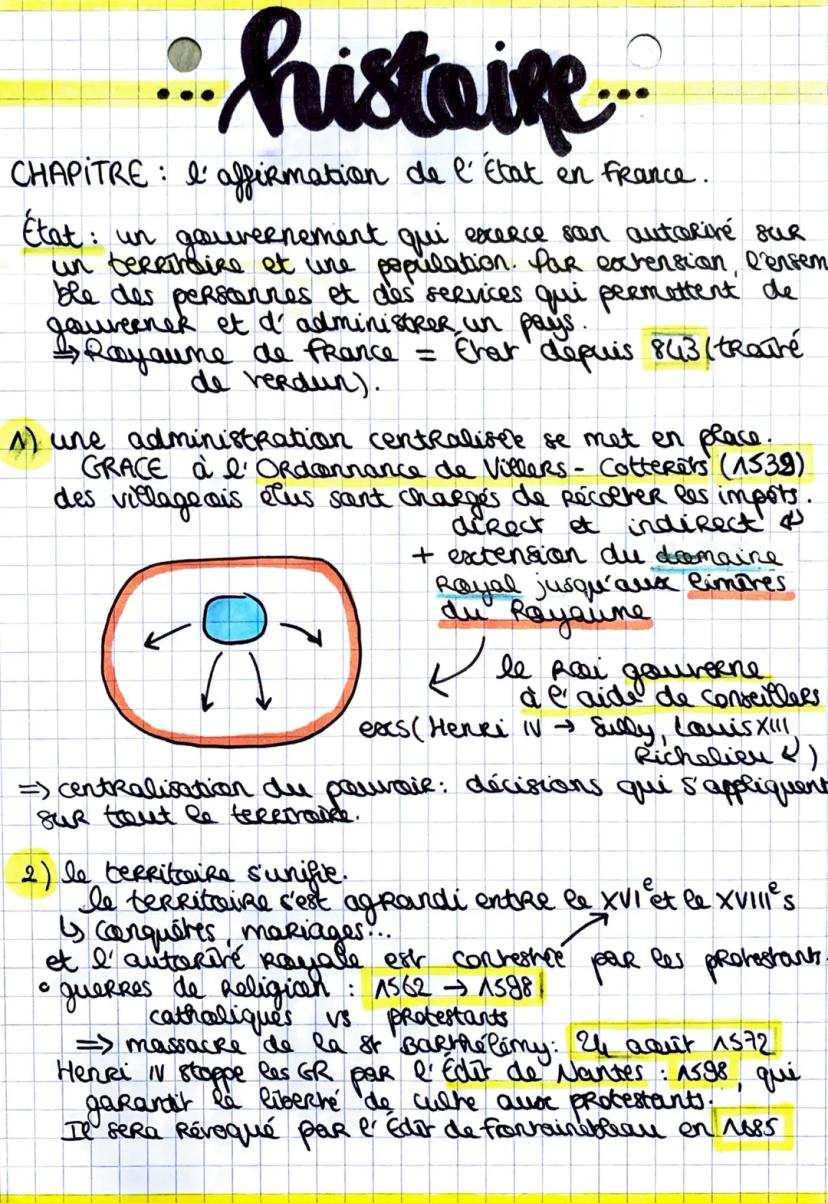 ... histoire ...
CHAPITRE : l'affirmation de l'État en France.
État : un gouvernement qui exerce son autorité sur
un territoire et une population. Par extension, l'ensem
ble des personnes et des services qui permettent de
gouverner et d'administrer un pays.
⇒ Royaume de France = État depuis 843 (traité
de Verdun).
1) une administration centralisée se met en place.
GRACE à l'Ordonnance de Villers-Cotterêts (1539)
des villageois élus sont chargés de récolter les impôts.
direct et indirect ↵
+ extension du domaine
Royal jusqu'aux limites
du Royaume
le roi gouverne
à l'aide de conseillers
exs (Henri IV → Sully, Louis XIII,
Richelieu ↵)
⇒ centralisation du pouvoir : décisions qui s'appliquent
sur tout le territoire.
2) le territoire s'unifie.
le territoire s'est agrandi entre le XVIe et le XVIIIe s
↳ conquêtes, mariages...
et l'autorité royale est contestée par les protestants.
• guerres de Religion : 1562 → 1598
catholiques vs protestants
⇒ massacre de la St Barthélémy : 24 août 1572
Henri IV stoppe les GR par l'Édit de Nantes : 1598, qui
garantit la liberté de culte aux protestants.
Il sera révoqué par l'Édit de Fontainebleau en 1685